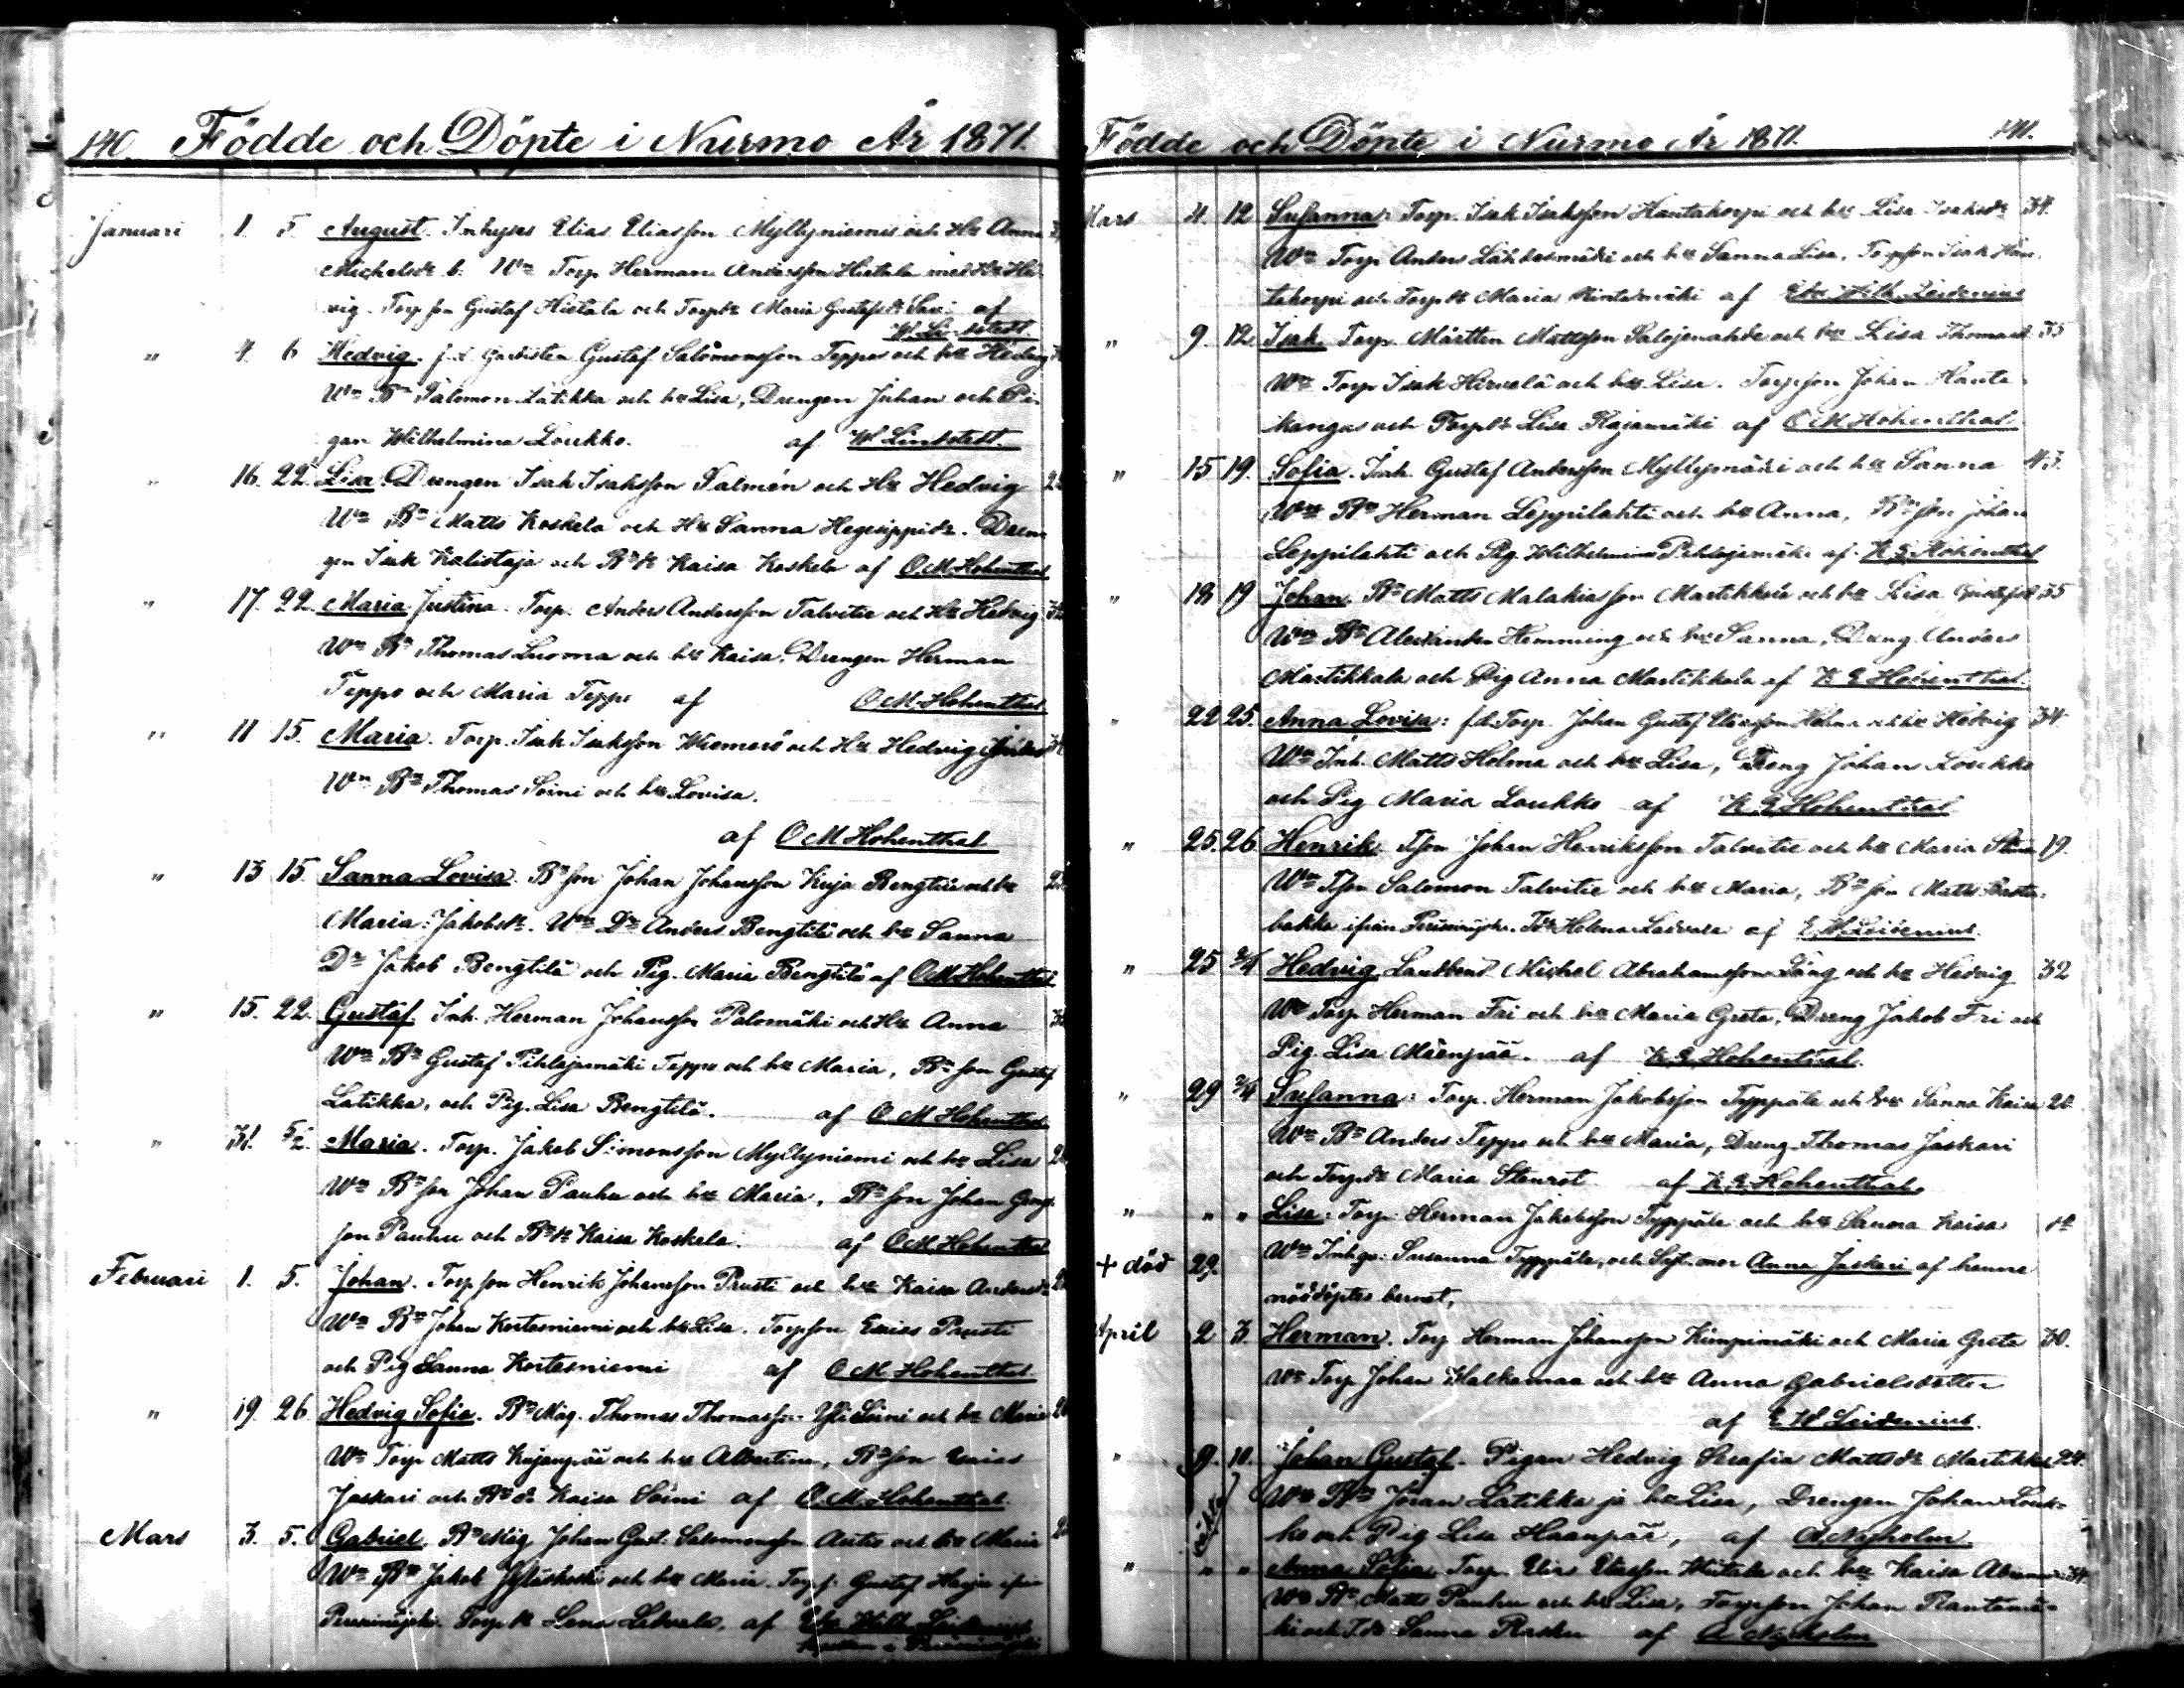 140. Födde och Döpte i Nurmo År 1871.
Januari 1. 5. August. Inhyses Elias Eliasson Myllyniemi och H:u Anna
Michelsdr b. Wn Torp Herman Andersson Hietala med H:u Hed-
vig. Torp son Gustaf Hietala och Torpdr Maria Gustafsdr Savi af
W Lindstedt.
" 4. 6 Hedvig. f.d. Gardisten Gustaf Salomonsson Teppo och h:u Hedvig
Wn Bn Salomon Latikka och h:u Lisa, Drengen Johan och Pi-
gan Wilhelmina Loukko. af W Lindstedt.
" 16. 22. Lisa. Drengen Isak Isaksson Salmén och H:u Hedvig
Wn Bn Matts Koskela och H:u Sanna Hegesippidr. Dren-
gen Isak Kalistaja och Bndr Kaisa Koskela af O.M. Hohenthal
" 17. 22. Maria Justina. Torp. Anders Andersson Talvitie och H:u Hedvig
Wn Bn Thomas Luoma och h:u Kaisa. Drengen Herman
Teppo och Maria Teppo af O.M. Hohenthal
" 11 15. Maria. Torp. Isak Isaksson och H:u Hedvig
Wn Bn Thomas Soini och h:u Lovisa.
af O M Hohenthal
" 13 15. Sanna Lovisa. Bn son Johan Johansson Kuja Bengtilä och h:u
Maria Jakobsdr. Wn Dr Anders Bengtilä och h:u Sanna
Dr Jakob Bengtilä och Pig. Maria Bengtilä af O.M. Hohenthal
" 15. 22. Gustaf. Inh. Herman Johansson Palomäki och H:u Anna
Wn Bn Gustaf Pihlajamäki Teppo och h:u Maria, Bn son Gustaf
Latikka, och Pig. Lisa Bengtilä. af O M Hohenthal
" 31. 5/2. Maria. Torp. Jakob Simonsson Myllyniemi och h:u Lisa
Wn Bn son Johan Pauhu och h:u Maria, Bn son Johan
son Pauhu och Bndr Kaisa Koskela. af O.M. Hohenthal
Februari 1. 5. Johan. Torp son Henrik Johansson Prusti och h:u Kaisa Andersdr
Wn Bn Johan Kortesniemi och h:u Lisa. Torpson Esaias Prusti
och Pig Sanna Kortesniemi af O M Hohenthal
" 19. 26. Hedvig Sofia. Bn Måg. Thomas Thomasson Yli Soini och h:u Maria
Wn Torp Matts Kujanpää och h:u Albertina, Bn son Esaias
Jaskari och Bndr Kaisa Soini af O. M. Hohenthal.
Mars 3. 5. Gabriel. Bn Måg Johan Gust. Salomonsson Autio och h:u Maria
Wn Bn Jakob och h:u Maria. Torp s. Gustaf Harju ifrån
Torp dr Lena af
Födde och Döpte i Nurmo År 1871. 141.
Mars 4. 12 Susanna: Torp. Isak Isaksson Hautakorpi och h:u Lisa Isaksdr 34.
Wn Torp Anders Lähdesmäki och h:u Sanna Lisa. Torpson Isak Hau-
takorpi och Torpdr Maria Rintamäki af Leidenius
" 9. 12. Isak. Torp Mårtten Mattsson Salojenahde och h:u Lisa Thomasd. 35
Wn Torp Isak Hirvelä och h:u Lisa. Torpson Johan Hauta-
kangas och Torpdr Lisa Rajamäki af O M Hohenthal
" 15 19. Sofia. Inh. Gustaf Andersson Myllymäki och h:u Sanna 43.
Wn Bn Herman Leppilahti och h:u Anna, Bn son Johan
Leppilahti och Pig. Wilhelmina Pihlajamäki af K. E. Hohenthal
" 18 19 Johan. Bn Matts Malakiasson Martikkala och h:u Lisa Gustafsd 35
Wn Bn Alexander Hemming och h:u Sanna, Dreng Anders
Martikkala och Pig Anna Martikkala af K E Hohenthal.
" 22 25. Anna Lovisa: f.d. Torp. Johan Gustaf Eliasson Holma och h:u Hedvig 34.
Wn Inh. Matts Holma och h:u Lisa, Dreng Johan Loukko
och Pig Maria Loukko af K. E. Hohenthal
" 25. 26 Henrik. Tson Johan Henriksson Talvitie och h:u Maria 19.
Wn Tson Salomon Talvitie och h:u Maria, Bn son Matts
backa ifrån Tdr Helena af E W Leidenius.
" 25 2/4 Hedvig. Landbond Michel Abrahamsson Lång och h:u Hedvig 32
Wn Torp Herman Fri och h:u Maria Greta, Dreng Jakob Fri och
Pig Lisa Mäenpää. af K. E. Hohenthal.
" 29 2/4 Susanna: Torp. Herman Jakobsson Typpälä och h:u Sanna Kaisa 20
Wn Bn Anders Teppo och h:u Maria, Dreng Thomas Jaskari
och Torpdr Maria Stenrot af K. E. Hohenthal.
" " " Lisa: Torp: Herman Jakobsson Typpälä och h:u Sanna Kaisa
+ död 29. Wn Inhys: Susanna Typpälä, och Anna Jaskari af henne
nöddöptes barnet,
April 2 3. Herman. Torp Herman Johansson Kimpimäki och Maria Greta 30.
Wn Torp Johan Halkamaa och h:u Anna Gabrielsdotter
af E W Leidenius.
" 9. 10. Johan Gustaf. Pigan Hedvig Serafia Mattsdr Martikka 24.
oäkta Wn Bn Johan Latikka ja h:u Lisa, Drengen Johan Louk-
ko och Pig Lisa Haanpää, af A. Nyholm.
" " " Anna Sofia. Torp. Elias Eliasson Hietala och h:u Kaisa 34.
Wn Bn Matts Pauhu och h:u Lisa, Torpson Johan Rantamä-
ki och Tdr Sanna Rasku af A. Nyholm